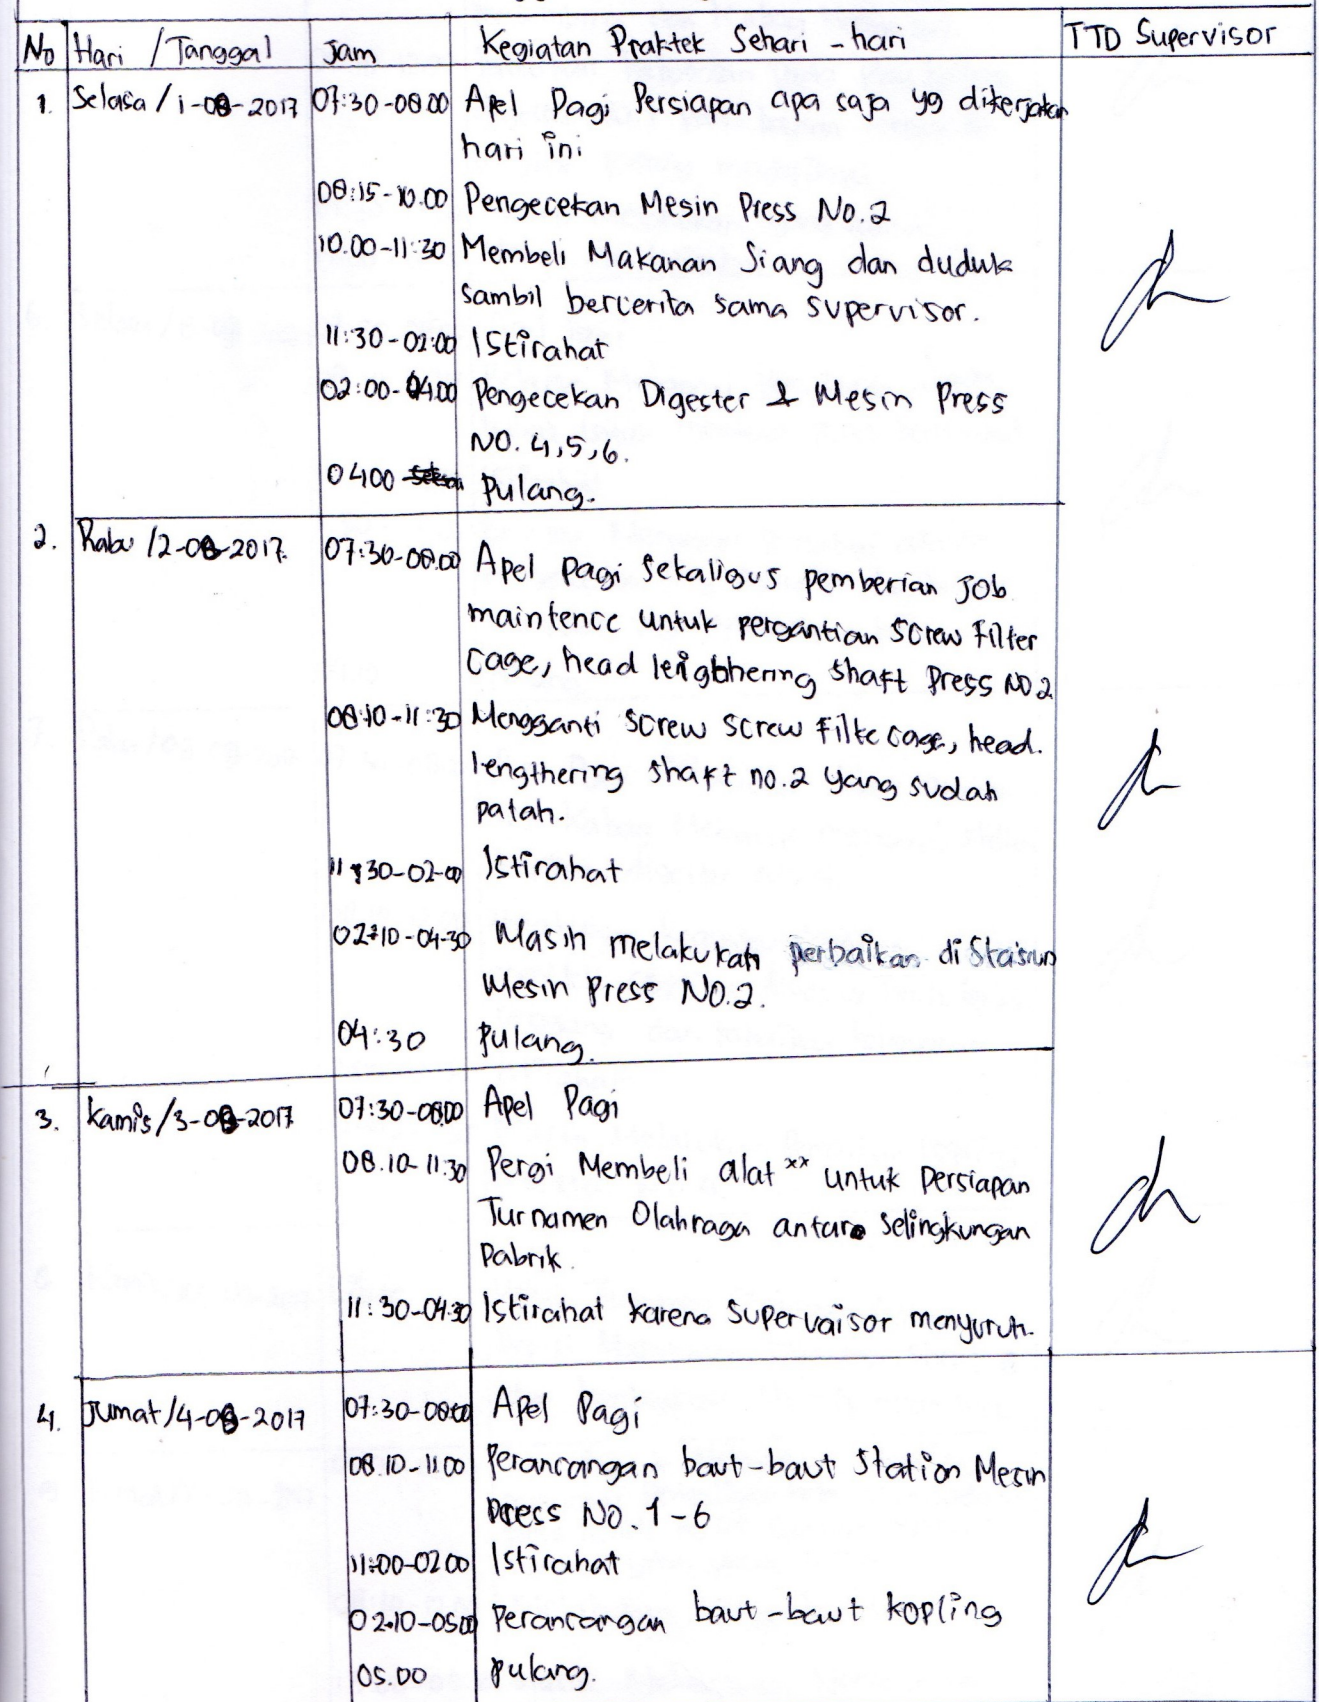 No Hari / Tanggal Jam Kegiatan Praktek Sehari - hari TTD Supervisor
1. Selasa / 1-08-2017 07:30-08.00 Apel Pagi Persiapan apa saja yg dikerjakan
hari ini
08:15-10.00 Pengecekan Mesin Press No.2
10.00-11:30 Membeli Makanan Siang dan duduk
sambil bercerita sama supervisor.
11:30-02:00 Istirahat
02:00-04.00 Pengecekan Digester & Mesin Press
NO. 4,5,6.
0400 Pulang.
2. Rabu /2-08-2017. 07:30-08.00 Apel pagi sekaligus pemberian Job
maintence untuk pergantian screw Filter
cage, head lengbhering shaft Press NO2
08:10-11:30 Mengganti screw screw Filte cage, head.
lengthering shaft no.2 yang sudah
patah.
11:30-02-00 Istirahat
02:10-04-30 Masih melakukan perbaikan di Stasiun
Mesin Press NO.2.
04:30 Pulang.
3. Kamis/3-08-2017 07:30-0800 Apel Pagi
08.10-11:30 Pergi Membeli alat ×× untuk Persiapan
Turnamen Olahraga antara selingkungan
Pabrik.
11:30-04:30 Istirahat karena Supervaisor menyuruh.
4. Jumat/4-08-2017 07:30-08:00 Apel Pagi
08.10-11.00 Perancangan baut-baut Station Mesin
Press NO.1-6
11:00-02.00 Istirahat
02.10-05.00 Perancangan baut-baut kopling
05.00 Pulang.